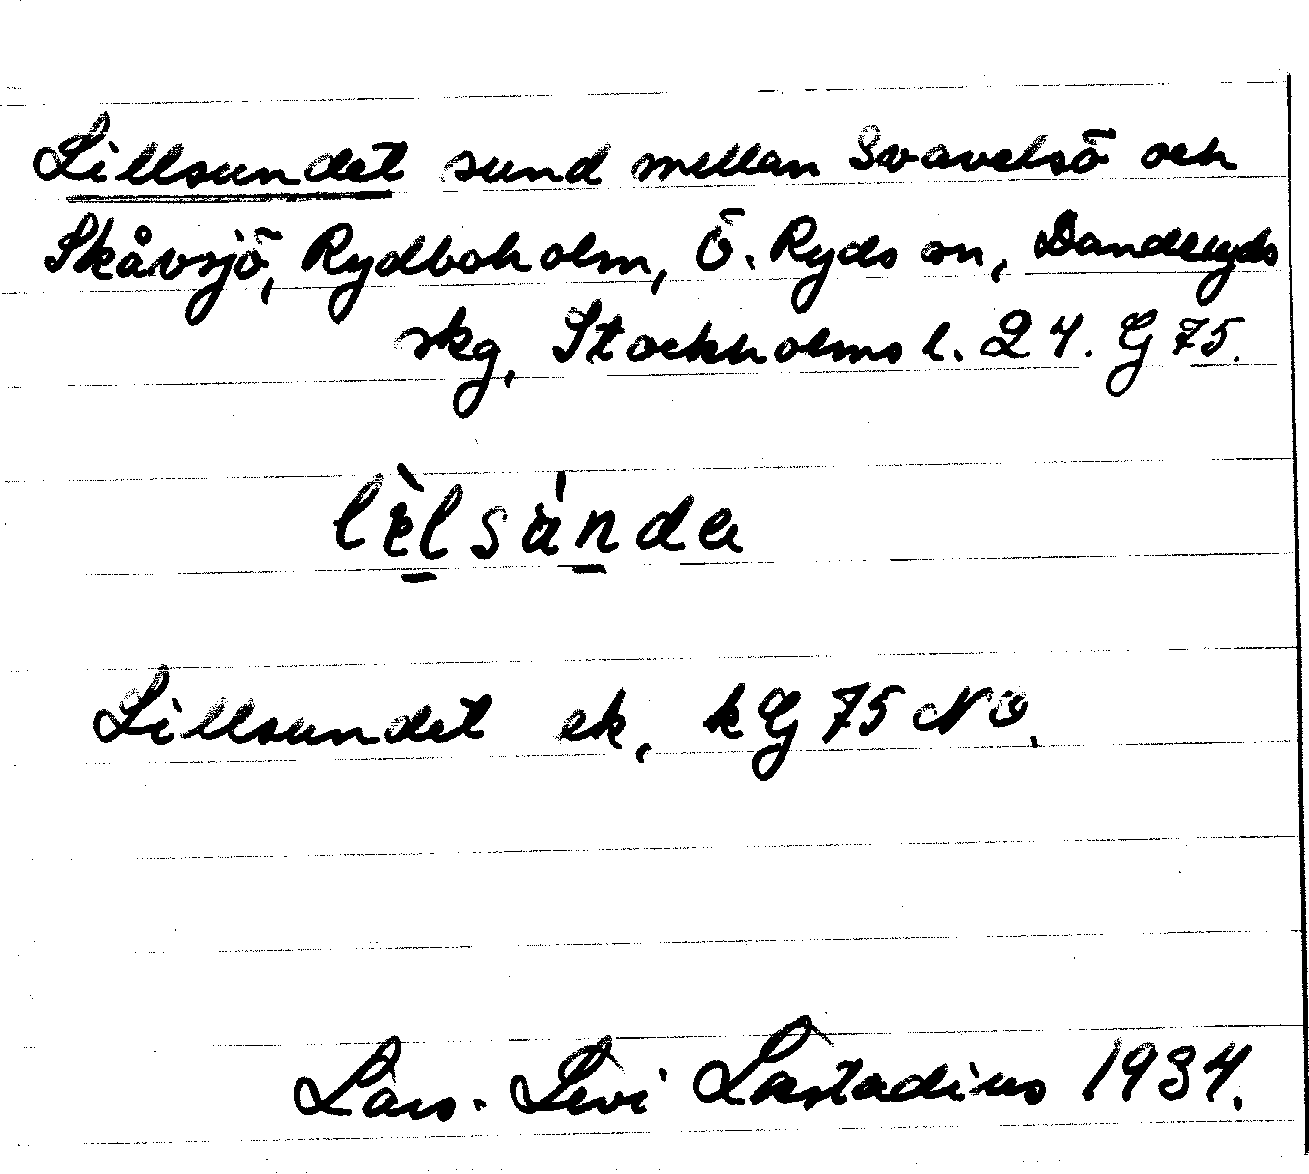 Lillsundet sund mellan Svavelsö och
Skåvsjö, Rydboholm, Ö. Ryds sn, Danderyds
skg, Stockholms l. 24. G 75.
Lillsundet ek, k G 75 NO.
Lars-Levi Læstadius 1934.